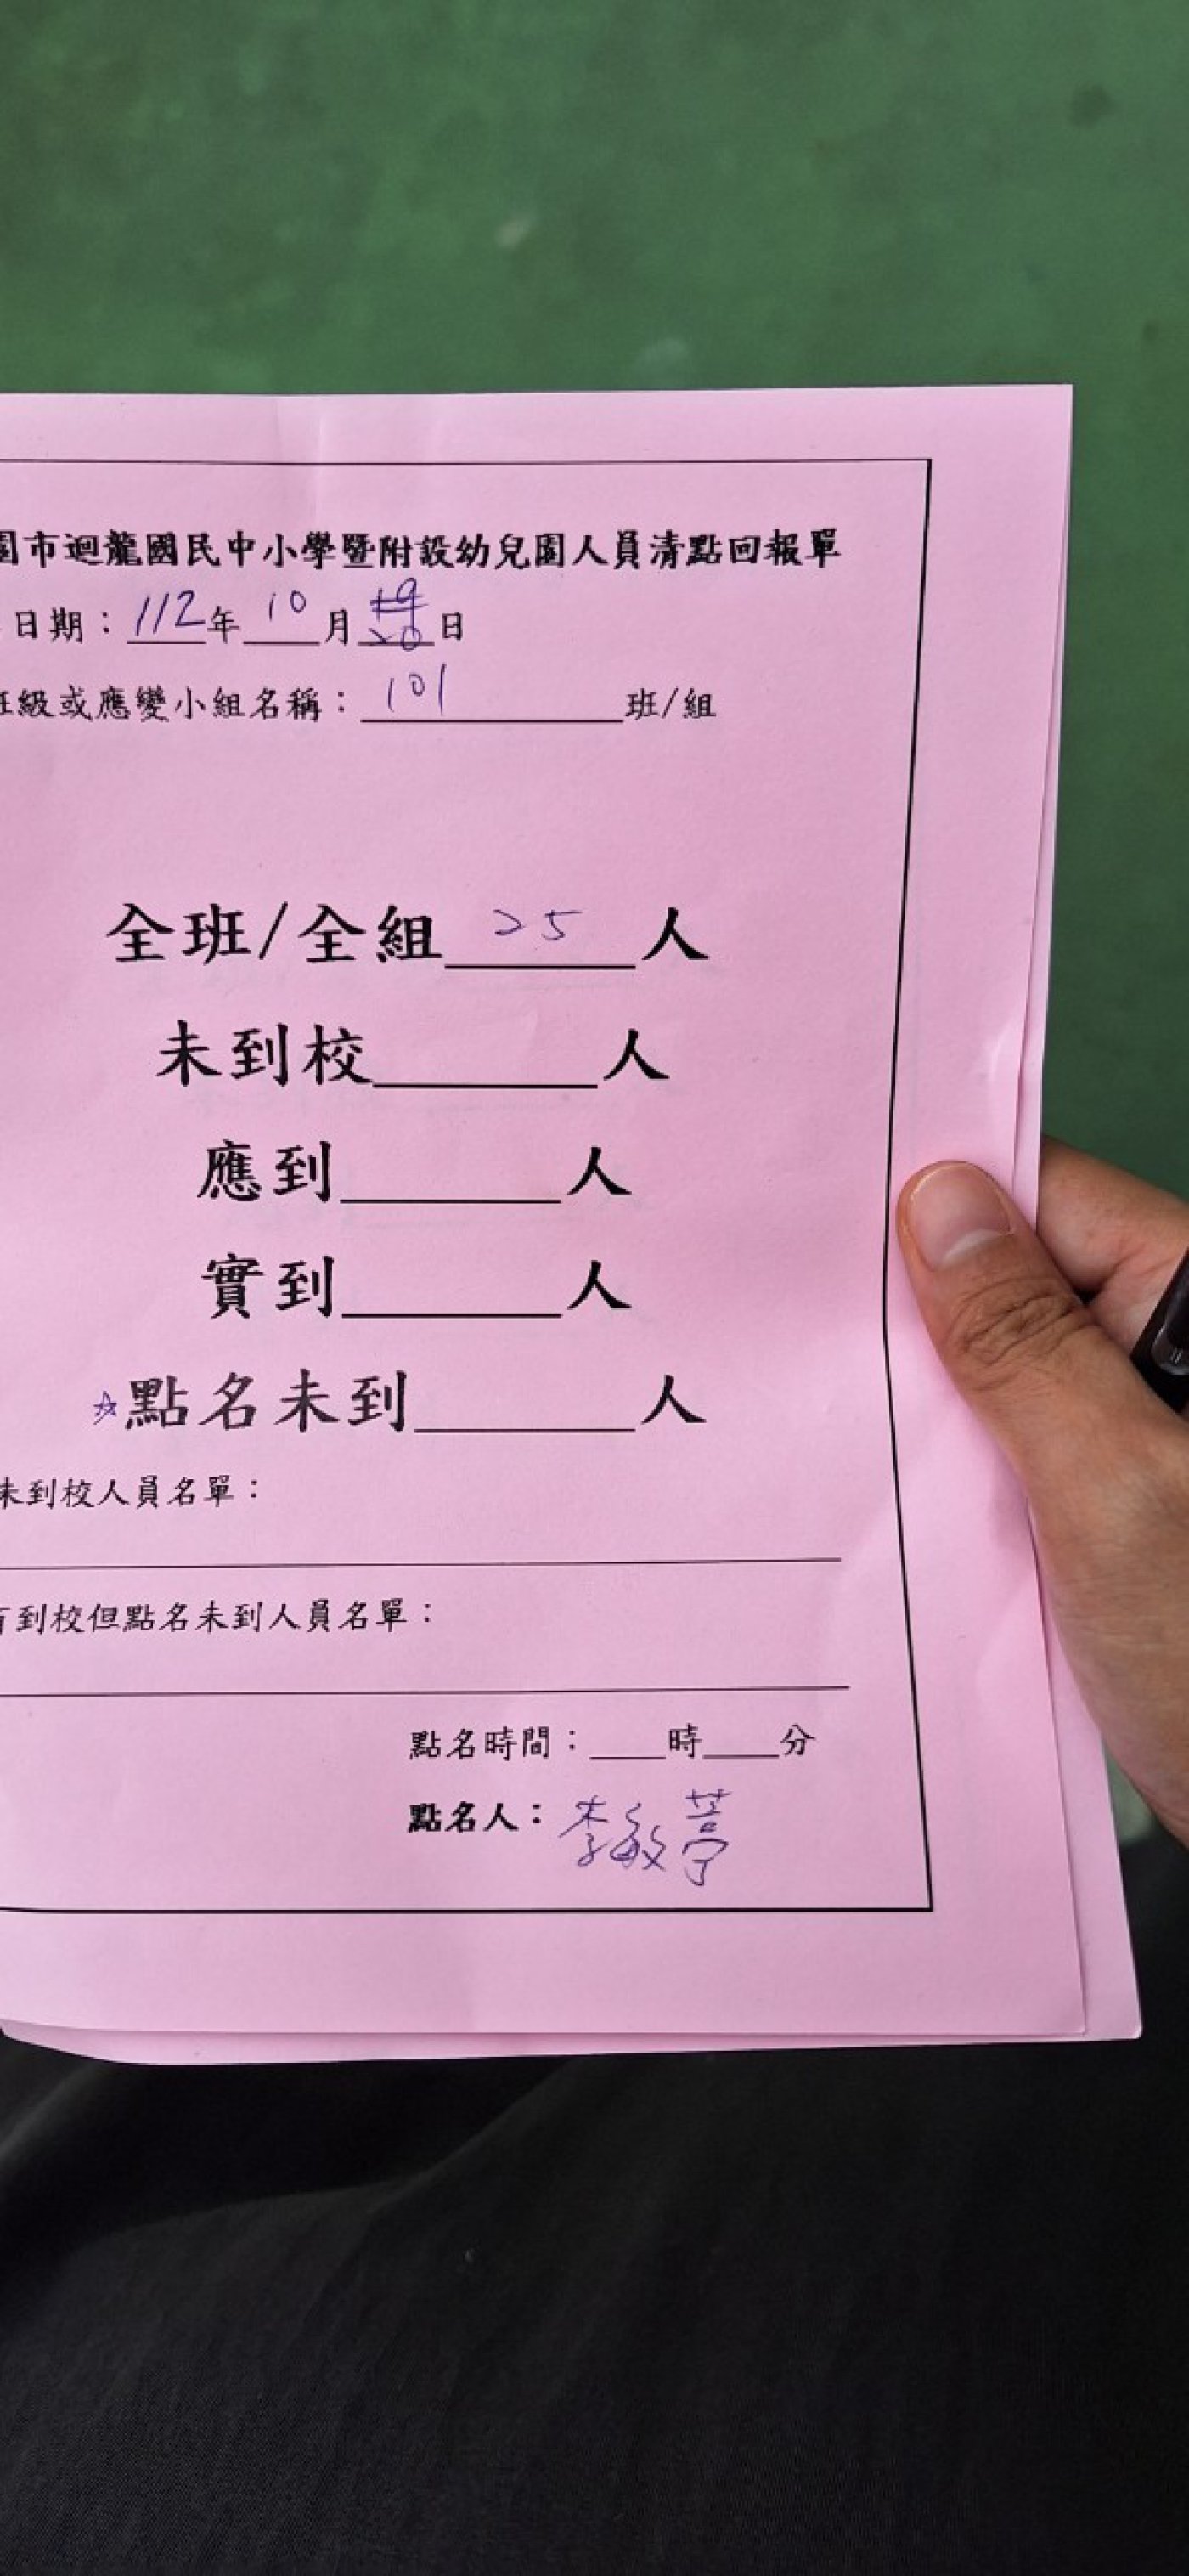 園市迴龍國民中小學暨附設幼兒園人員清點回報單
日期：112年10月20日
班級或應變小組名稱：101班/組
全班/全組25人
未到校____人
應到____人
實到____人
☆點名未到____人
未到校人員名單：
有到校但點名未到人員名單：
點名時間：__時__分
點名人：李敏葶